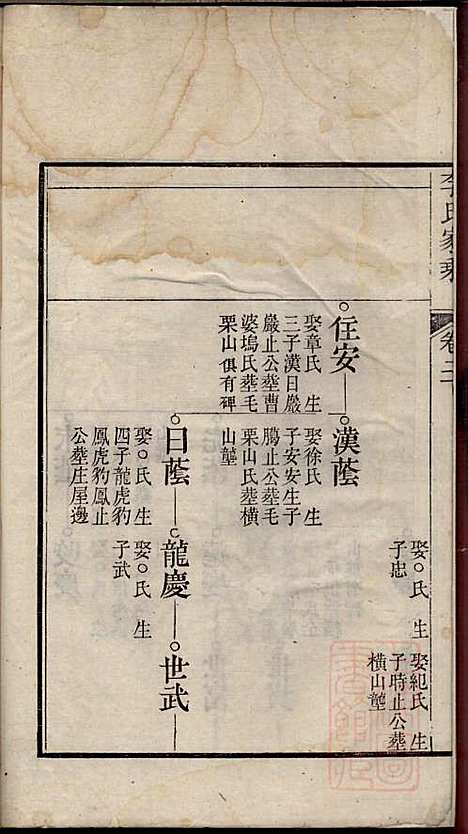 李氏家乘
卷二
娶○氏　生
子忠
娶紀氏　生
子時止公塟
橫山蓳
任安
娶章氏　生
三子漢日嚴
嚴止公塟曹
婆塢氏塟毛
栗山俱有碑
漢蔭
娶徐氏　生
子安安生子
騰止公塟毛
栗山氏塟橫
山蓳
日蔭
娶○氏　生
四子龍虎豹
鳳虎豹鳳止
公塟庄屋邊
龍慶
娶○氏　生
子武
世武